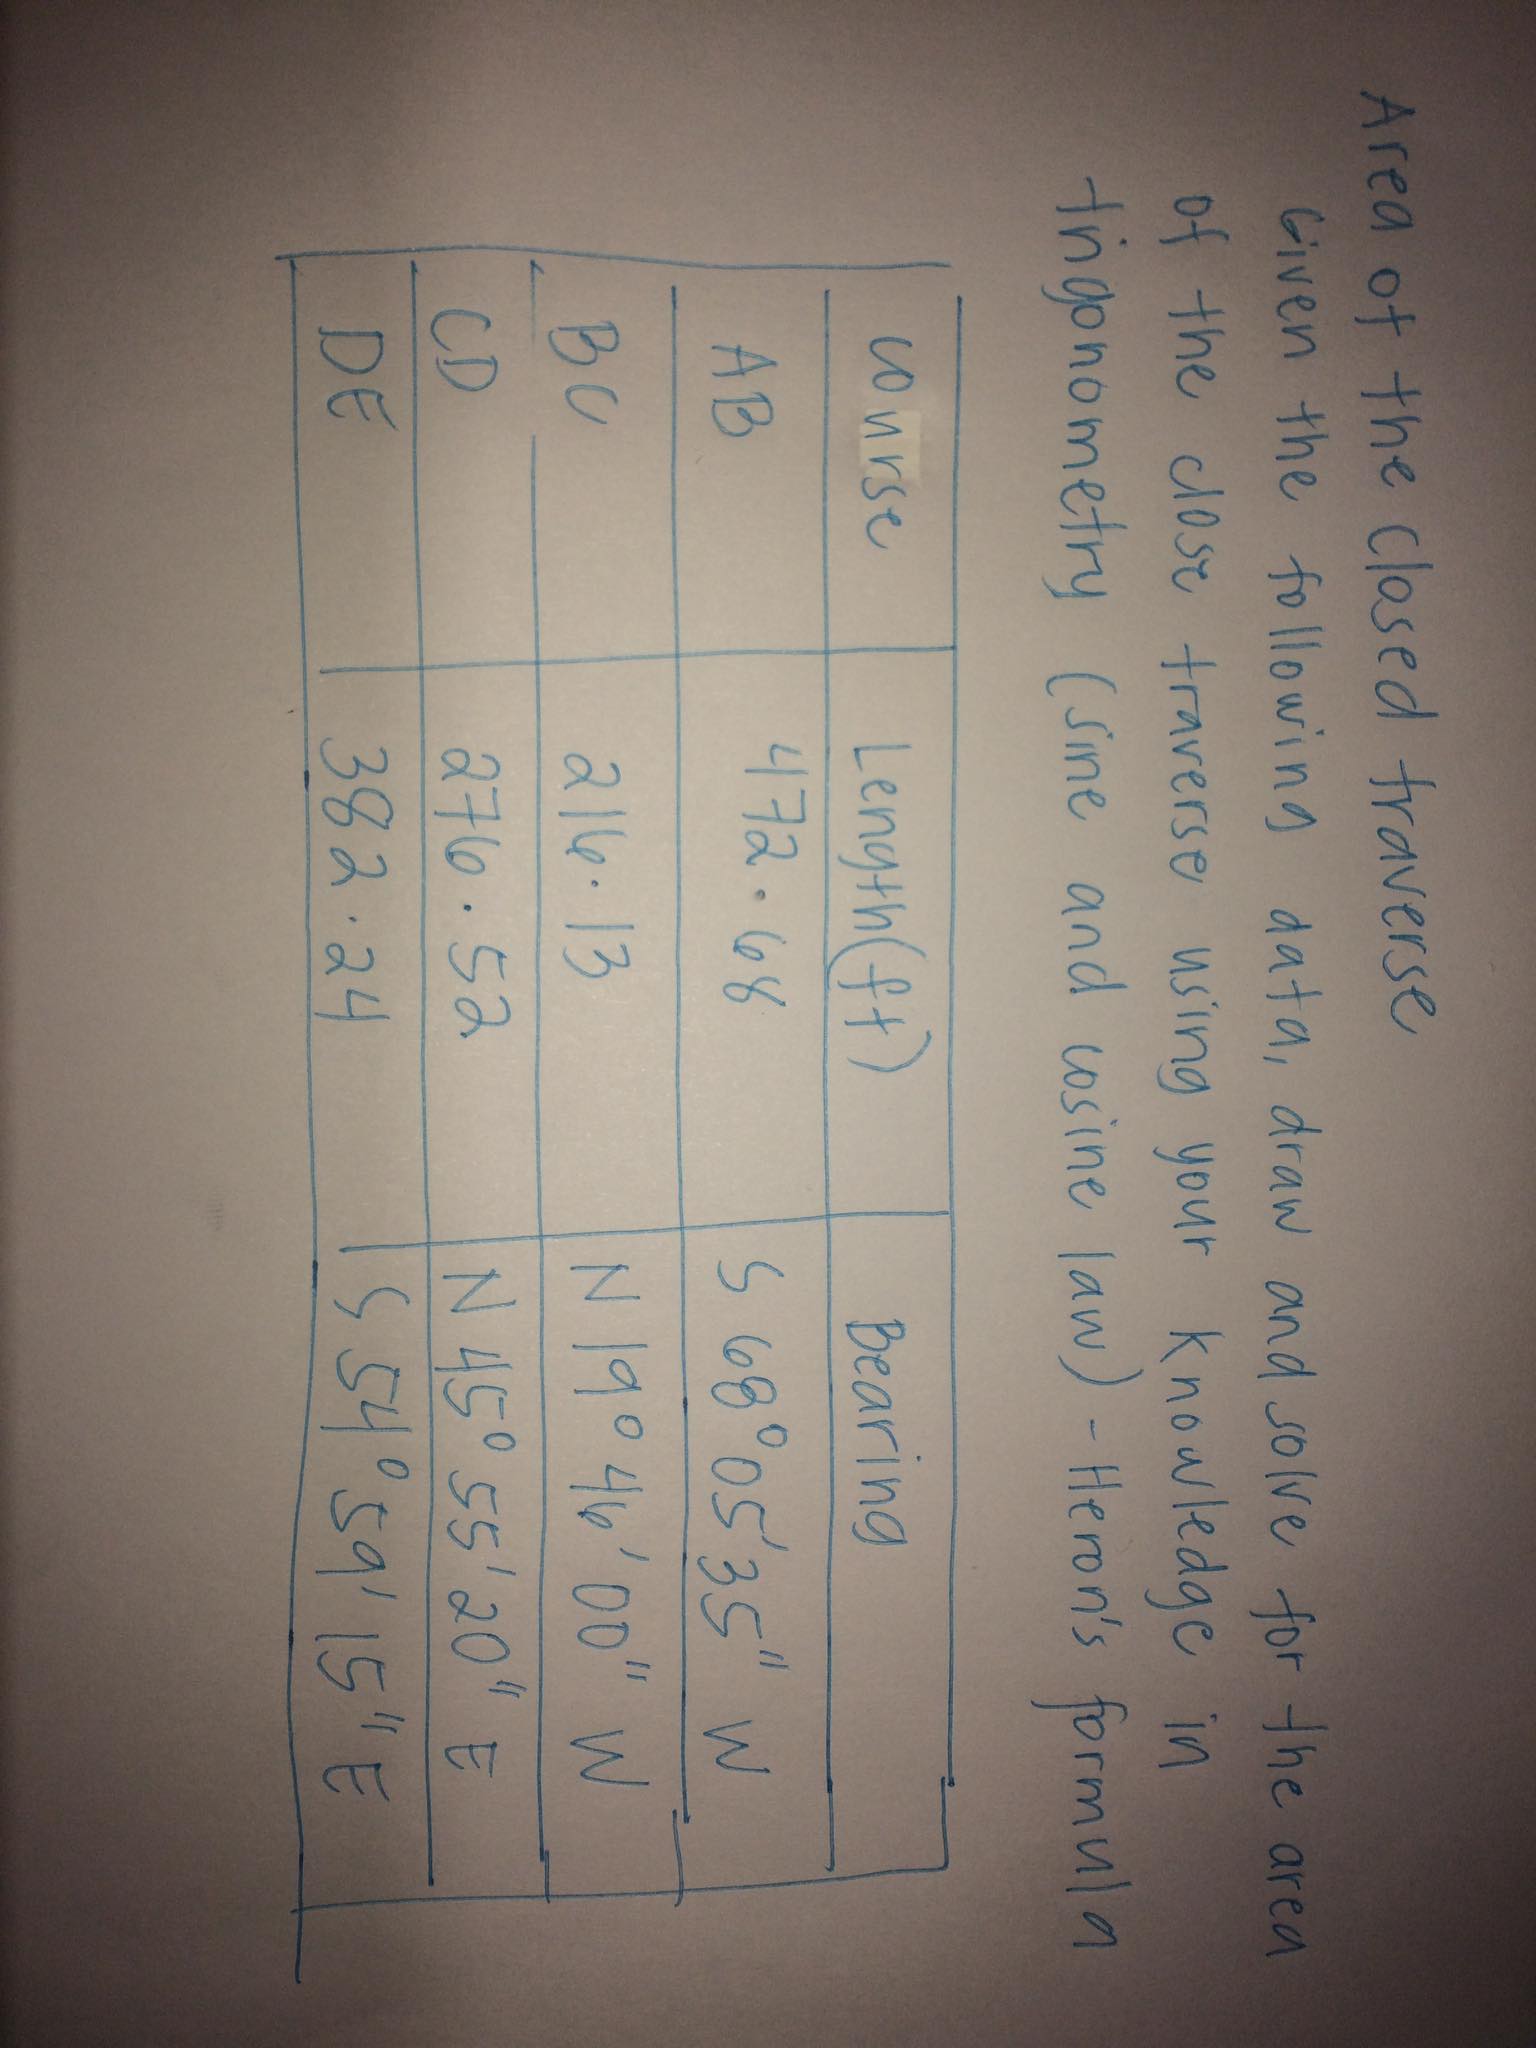 Area of the Closed traverse
Given the following data, draw and solve for the area
of the close traverse using your knowledge in
tringonometry (sine and cosine law) - Heron's formula
Course Length(ft) Bearing
AB 472.68 S 68° 05' 35" W
BC 216.13 N 19° 46' 00" W
CD 276.52 N 45° 55' 20" E
DE 382.24 S 54° 59' 15" E